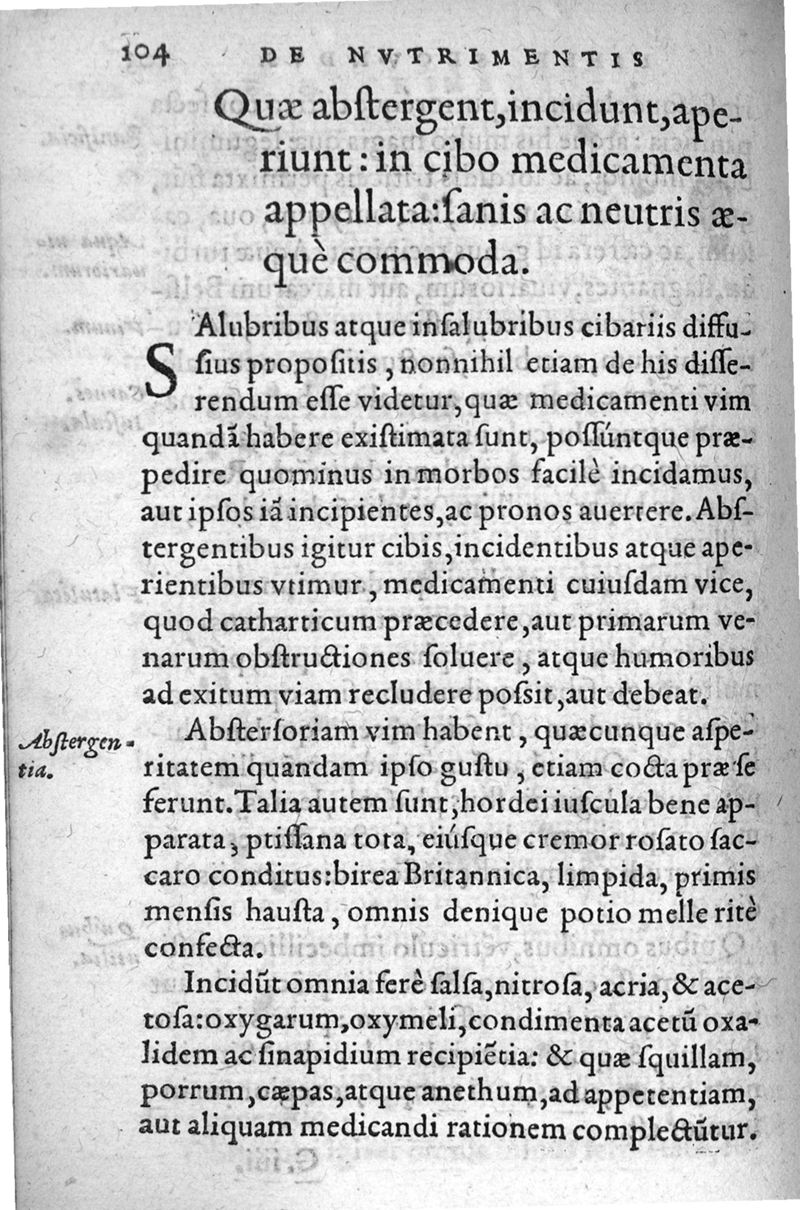 104 DE NVTRIMENTIS
Quæ abſtergent,incidunt,ape-
riunt : in cibo medicamenta
appellata:ſanis ac neutris æ-
què commoda.
SAlubribus atque inſalubribus cibariis diffu-
ſius propoſitis , nonnihil etiam de his diſſe-
rendum eſſe videtur,quæ medicamenti vim
quandã habere exiſtimata ſunt, poſſúntque præ-
pedire quominus in morbos facilè incidamus,
aut ipſos iã incipientes,ac pronos auertere. Abſ-
tergentibus igitur cibis,incidentibus atque ape-
rientibus vtimur , medicamenti cuiuſdam vice,
quod catharticum præcedere,aut primarum ve-
narum obſtructiones ſoluere , atque humoribus
ad exitum viam recludere poſsit,aut debeat.
Abſterſoriam vim habent , quæcunque aſpe-
Abſtergen-
tia.
ritatem quandam ipſo guſtu , etiam cocta præ ſe
ferunt.Talia autem ſunt,hordei iuſcula bene ap-
parata, ptiſſana tota, eiúſque cremor roſato ſac-
caro conditus:birea Britannica, limpida, primis
menſis hauſta , omnis denique potio melle ritè
confecta.
Incidũt omnia ferè ſalſa,nitroſa, acria, & ace-
toſa:oxygarum,oxymeli,condimenta acetũ oxa-
lidem ac ſinapidium recipiẽtia: & quæ ſquillam,
porrum,cæpas,atque anethum,ad appetentiam,
aut aliquam medicandi rationem complectũtur.